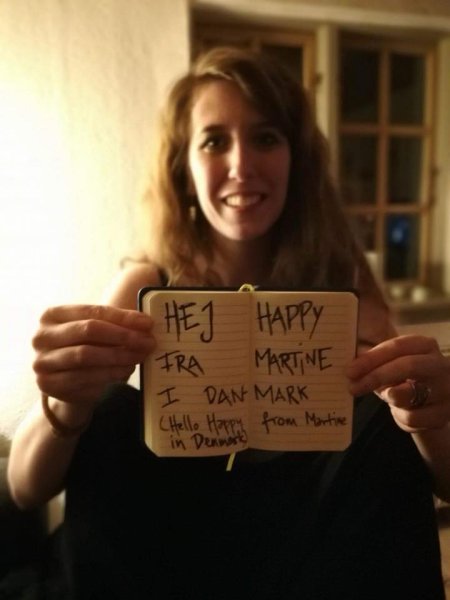 HEJ HAPPY
FRA MARTINE
I DANMARK
(Hello Happy from Martine
in Denmark)